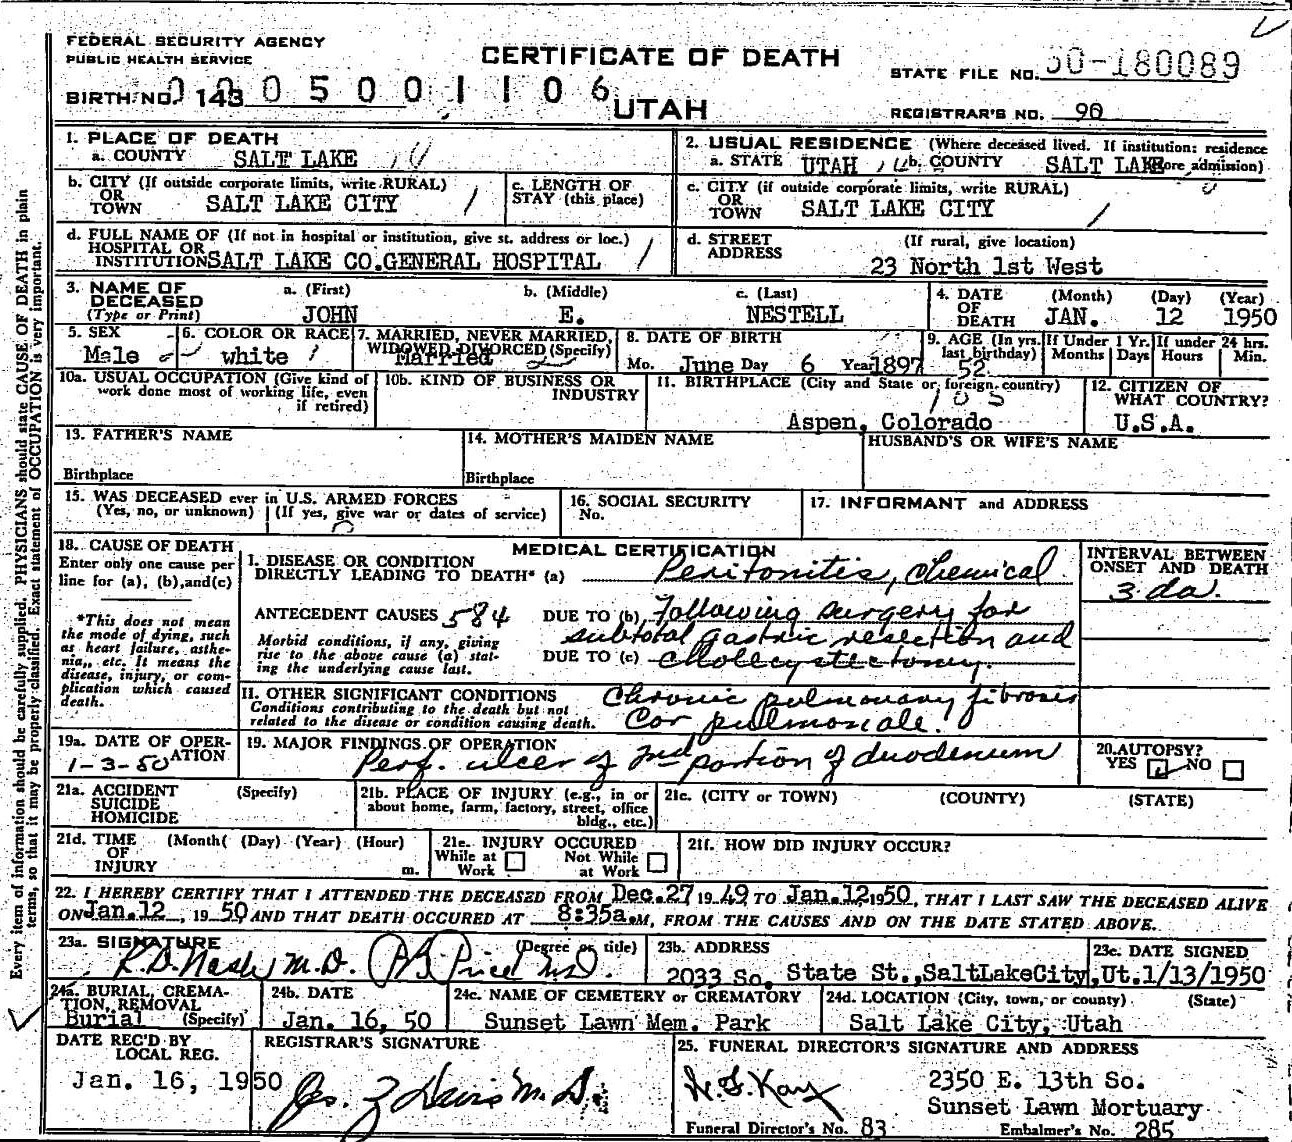 FEDERAL SECURITY AGENCY
PUBLIC HEALTH SERVICE
CERTIFICATE OF DEATH
STATE FILE NO. 50-180089
BIRTH NO. 143 0005001106
UTAH
REGISTRAR'S NO. 90
1. PLACE OF DEATH
a. COUNTY SALT LAKE
2. USUAL RESIDENCE (Where deceased lived. If institution: residence
a. STATE UTAH b. COUNTY SALT LAKE ore admission)
b. CITY (If outside corporate limits, write RURAL)
OR
TOWN SALT LAKE CITY
c. LENGTH OF
STAY (this place)
c. CITY (if outside corporate limits, write RURAL)
OR
TOWN SALT LAKE CITY
d. FULL NAME OF (If not in hospital or institution, give st. address or loc.)
HOSPITAL OR
INSTITUTION SALT LAKE CO.GENERAL HOSPITAL
d. STREET
ADDRESS (If rural, give location)
23 North 1st West
3. NAME OF
DECEASED
(Type or Print)
a. (First) b. (Middle) c. (Last)
JOHN E. NESTELL
4. DATE
OF
DEATH
(Month) (Day) (Year)
JAN. 12 1950
5. SEX
Male
6. COLOR OR RACE
white
7. MARRIED, NEVER MARRIED,
WIDOWED, DIVORCED (Specify)
Married
8. DATE OF BIRTH
Mo. June Day 6 Year 1897
9. AGE (In yrs. last birthday) 52
If Under 1 Yr. Months Days
If under 24 hrs. Hours Min.
10a. USUAL OCCUPATION (Give kind of
work done most of working life, even
if retired)
10b. KIND OF BUSINESS OR
INDUSTRY
11. BIRTHPLACE (City and State or foreign country)
105
Aspen, Colorado
12. CITIZEN OF
WHAT COUNTRY?
U.S.A.
13. FATHER'S NAME
Birthplace
14. MOTHER'S MAIDEN NAME
Birthplace
HUSBAND'S OR WIFE'S NAME
15. WAS DECEASED ever in U.S. ARMED FORCES
(Yes, no, or unknown) (If yes, give war or dates of service)
16. SOCIAL SECURITY
No.
17. INFORMANT and ADDRESS
18. CAUSE OF DEATH
Enter only one cause per
line for (a), (b), and (c)
*This does not mean
the mode of dying, such
as heart failure, asthe-
nia,, etc. It means the
disease, injury, or com-
plication which caused
death.
MEDICAL CERTIFICATION
I. DISEASE OR CONDITION
DIRECTLY LEADING TO DEATH* (a) Peritonitis, Chemical
ANTECEDENT CAUSES 584 DUE TO (b) Following surgery for
subtotal gastric resection and
Morbid conditions, if any, giving
rise to the above cause (a) stat-
ing the underlying cause last.
DUE TO (c) Cholecystectomy.
INTERVAL BETWEEN
ONSET AND DEATH
3 da.
II. OTHER SIGNIFICANT CONDITIONS
Conditions contributing to the death but not
related to the disease or condition causing death.
Chronic pulmonary fibrosis
Cor pulmonale.
19a. DATE OF OPER-
ATION
1-3-50
19. MAJOR FINDINGS OF OPERATION
Perf. ulcer of 2nd portion of duodenum
20. AUTOPSY?
YES NO
21a. ACCIDENT
SUICIDE
HOMICIDE
(Specify)
21b. PLACE OF INJURY (e.g., in or
about home, farm, factory, street, office
bldg., etc.)
21c. (CITY or TOWN) (COUNTY) (STATE)
21d. TIME
OF
INJURY
(Month( (Day) (Year) (Hour)
m.
21e. INJURY OCCURED
While at
Work
Not While
at Work
21f. HOW DID INJURY OCCUR?
22. I HEREBY CERTIFY THAT I ATTENDED THE DECEASED FROM Dec.27 19 49 TO Jan.12 1950, THAT I LAST SAW THE DECEASED ALIVE
ON Jan.12, 19 50 AND THAT DEATH OCCURED AT 8:35a.M, FROM THE CAUSES AND ON THE DATE STATED ABOVE.
23a. SIGNATURE (Degree or title)
R.D. Nash M.D. Price M.D.
23b. ADDRESS
2033 So. State St.,SaltLakeCity,Ut.
23c. DATE SIGNED
1/13/1950
24a. BURIAL, CREMA-
TION, REMOVAL
Burial (Specify)
24b. DATE
Jan. 16, 50
24c. NAME OF CEMETERY or CREMATORY
Sunset Lawn Mem. Park
24d. LOCATION (City, town, or county) (State)
Salt Lake City, Utah
DATE REC'D BY
LOCAL REG.
Jan. 16, 1950
REGISTRAR'S SIGNATURE
25. FUNERAL DIRECTOR'S SIGNATURE AND ADDRESS
2350 E. 13th So.
Sunset Lawn Mortuary
Funeral Director's No. 83 Embalmer's No. 285
Every item of information should be carefully supplied. PHYSICIANS should state CAUSE OF DEATH in plain
terms, so that it may be properly classified. Exact statement of OCCUPATION is very important.